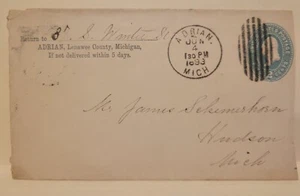 Return to S. J. Winter &c
ADRIAN, Lenawee County, Michigan,
If not delivered within 5 days.
ADRIAN.
JUN
1893
MICH
Mr James Schemerhorn
Hudson
Mich